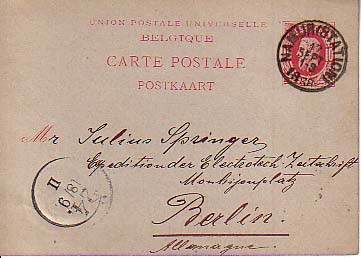 UNION POSTALE UNIVERSELLE
BELGIQUE
CARTE POSTALE
POSTKAART
NAMUR (STATION)
Mr Julius Springer
Expedition der Electrotech-Zeitschrift
Monbijouplatz
Berlin
Allemagne.